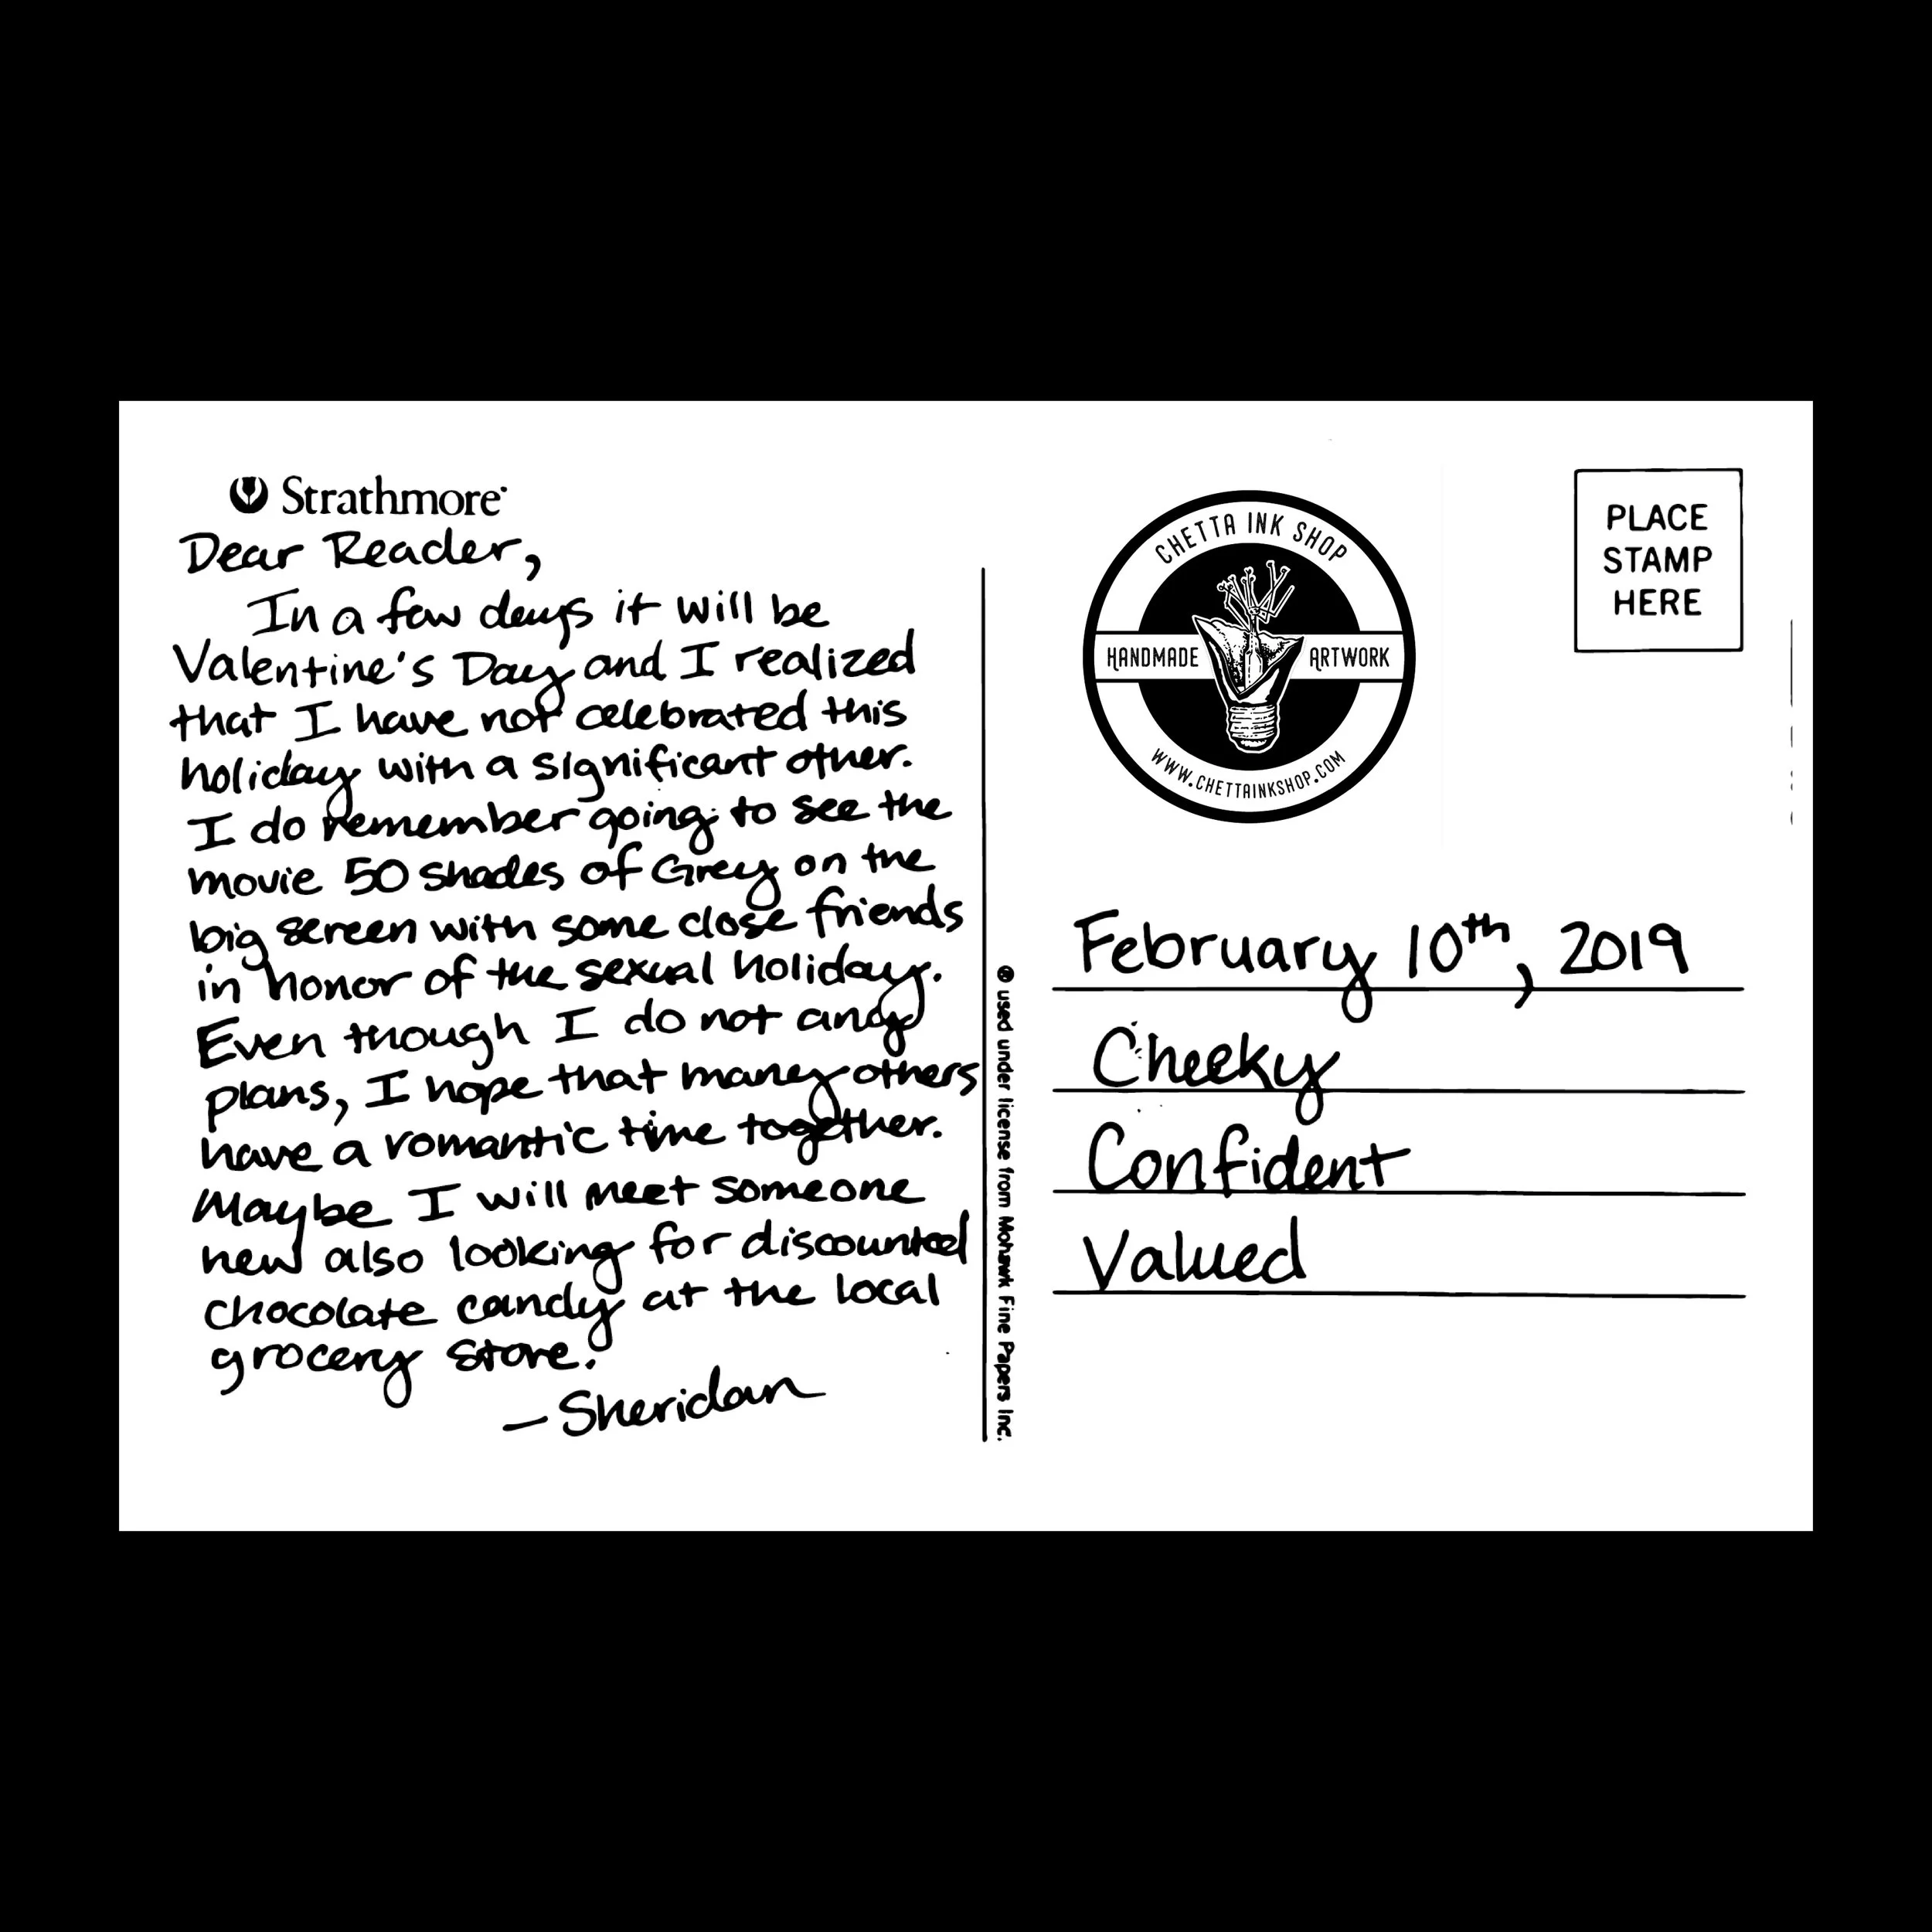 Strathmore
Dear Reader,
In a few days it will be
Valentine's Day and I realized
that I have not celebrated this
holiday with a significant other.
I do remember going to see the
movie 50 shades of Grey on the
big screen with some close friends
in honor of the sexual holiday.
Even though I do not any
plans, I hope that many others
have a romantic time together.
Maybe I will meet someone
new also looking for discounted
chocolate candy at the local
grocery store.
— Sheridan
® used under license from Mohawk Fine Papers Inc.
CHETTA INK SHOP
HANDMADE ARTWORK
WWW.CHETTAINKSHOP.COM
PLACE
STAMP
HERE
February 10th, 2019
Cheeky
Confident
Valued